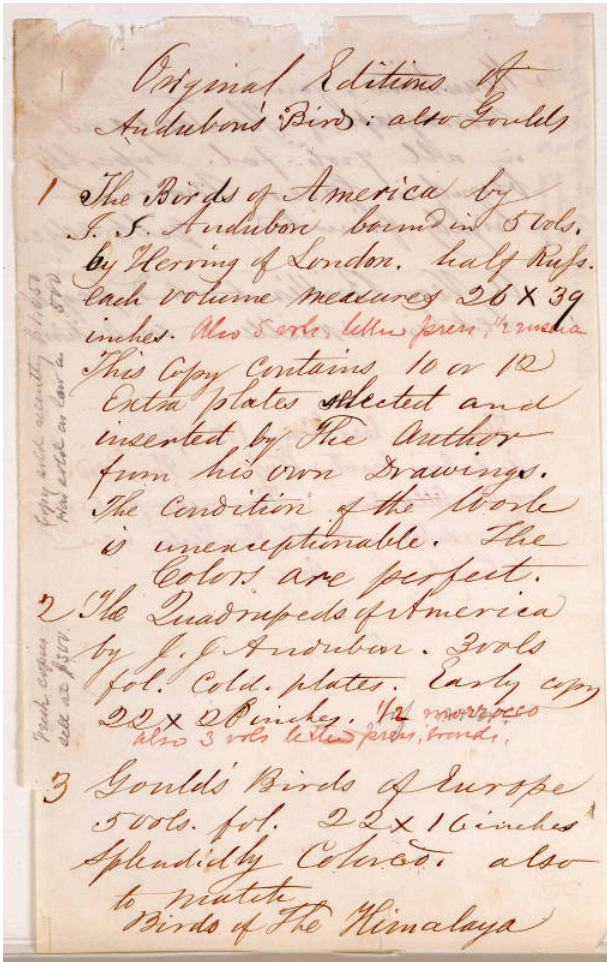 Original Editions of
Audubon's Birds: also Goulds
1 The Birds of America by
J. J. Audubon bound in 5 vols.
by Herring of London. half Russ.
each volume measures 26 x 39
inches. Also 5 vols. letter press, 1/2 russia
This Copy Contains 10 or 12
Extra plates selected and
inserted by The Author
from his own Drawings.
The Condition of the Work
is unexceptionable. The
Colors are perfect.
2 The Quadrupeds of America
by J. J Audubon. 3 vols
fol. Cold. plates. Early copy
22 x 28 inches. 1/2 morrocco
also 3 vols letter press, bound.
3 Gould's Birds of Europe
5 vols. fol. 22 x 16 inches
Splendidly Colored. also
to match
Birds of The Himalaya
Copy sold recently $1,050
Has sold as low as 500
Fresh copies
sell at $300.